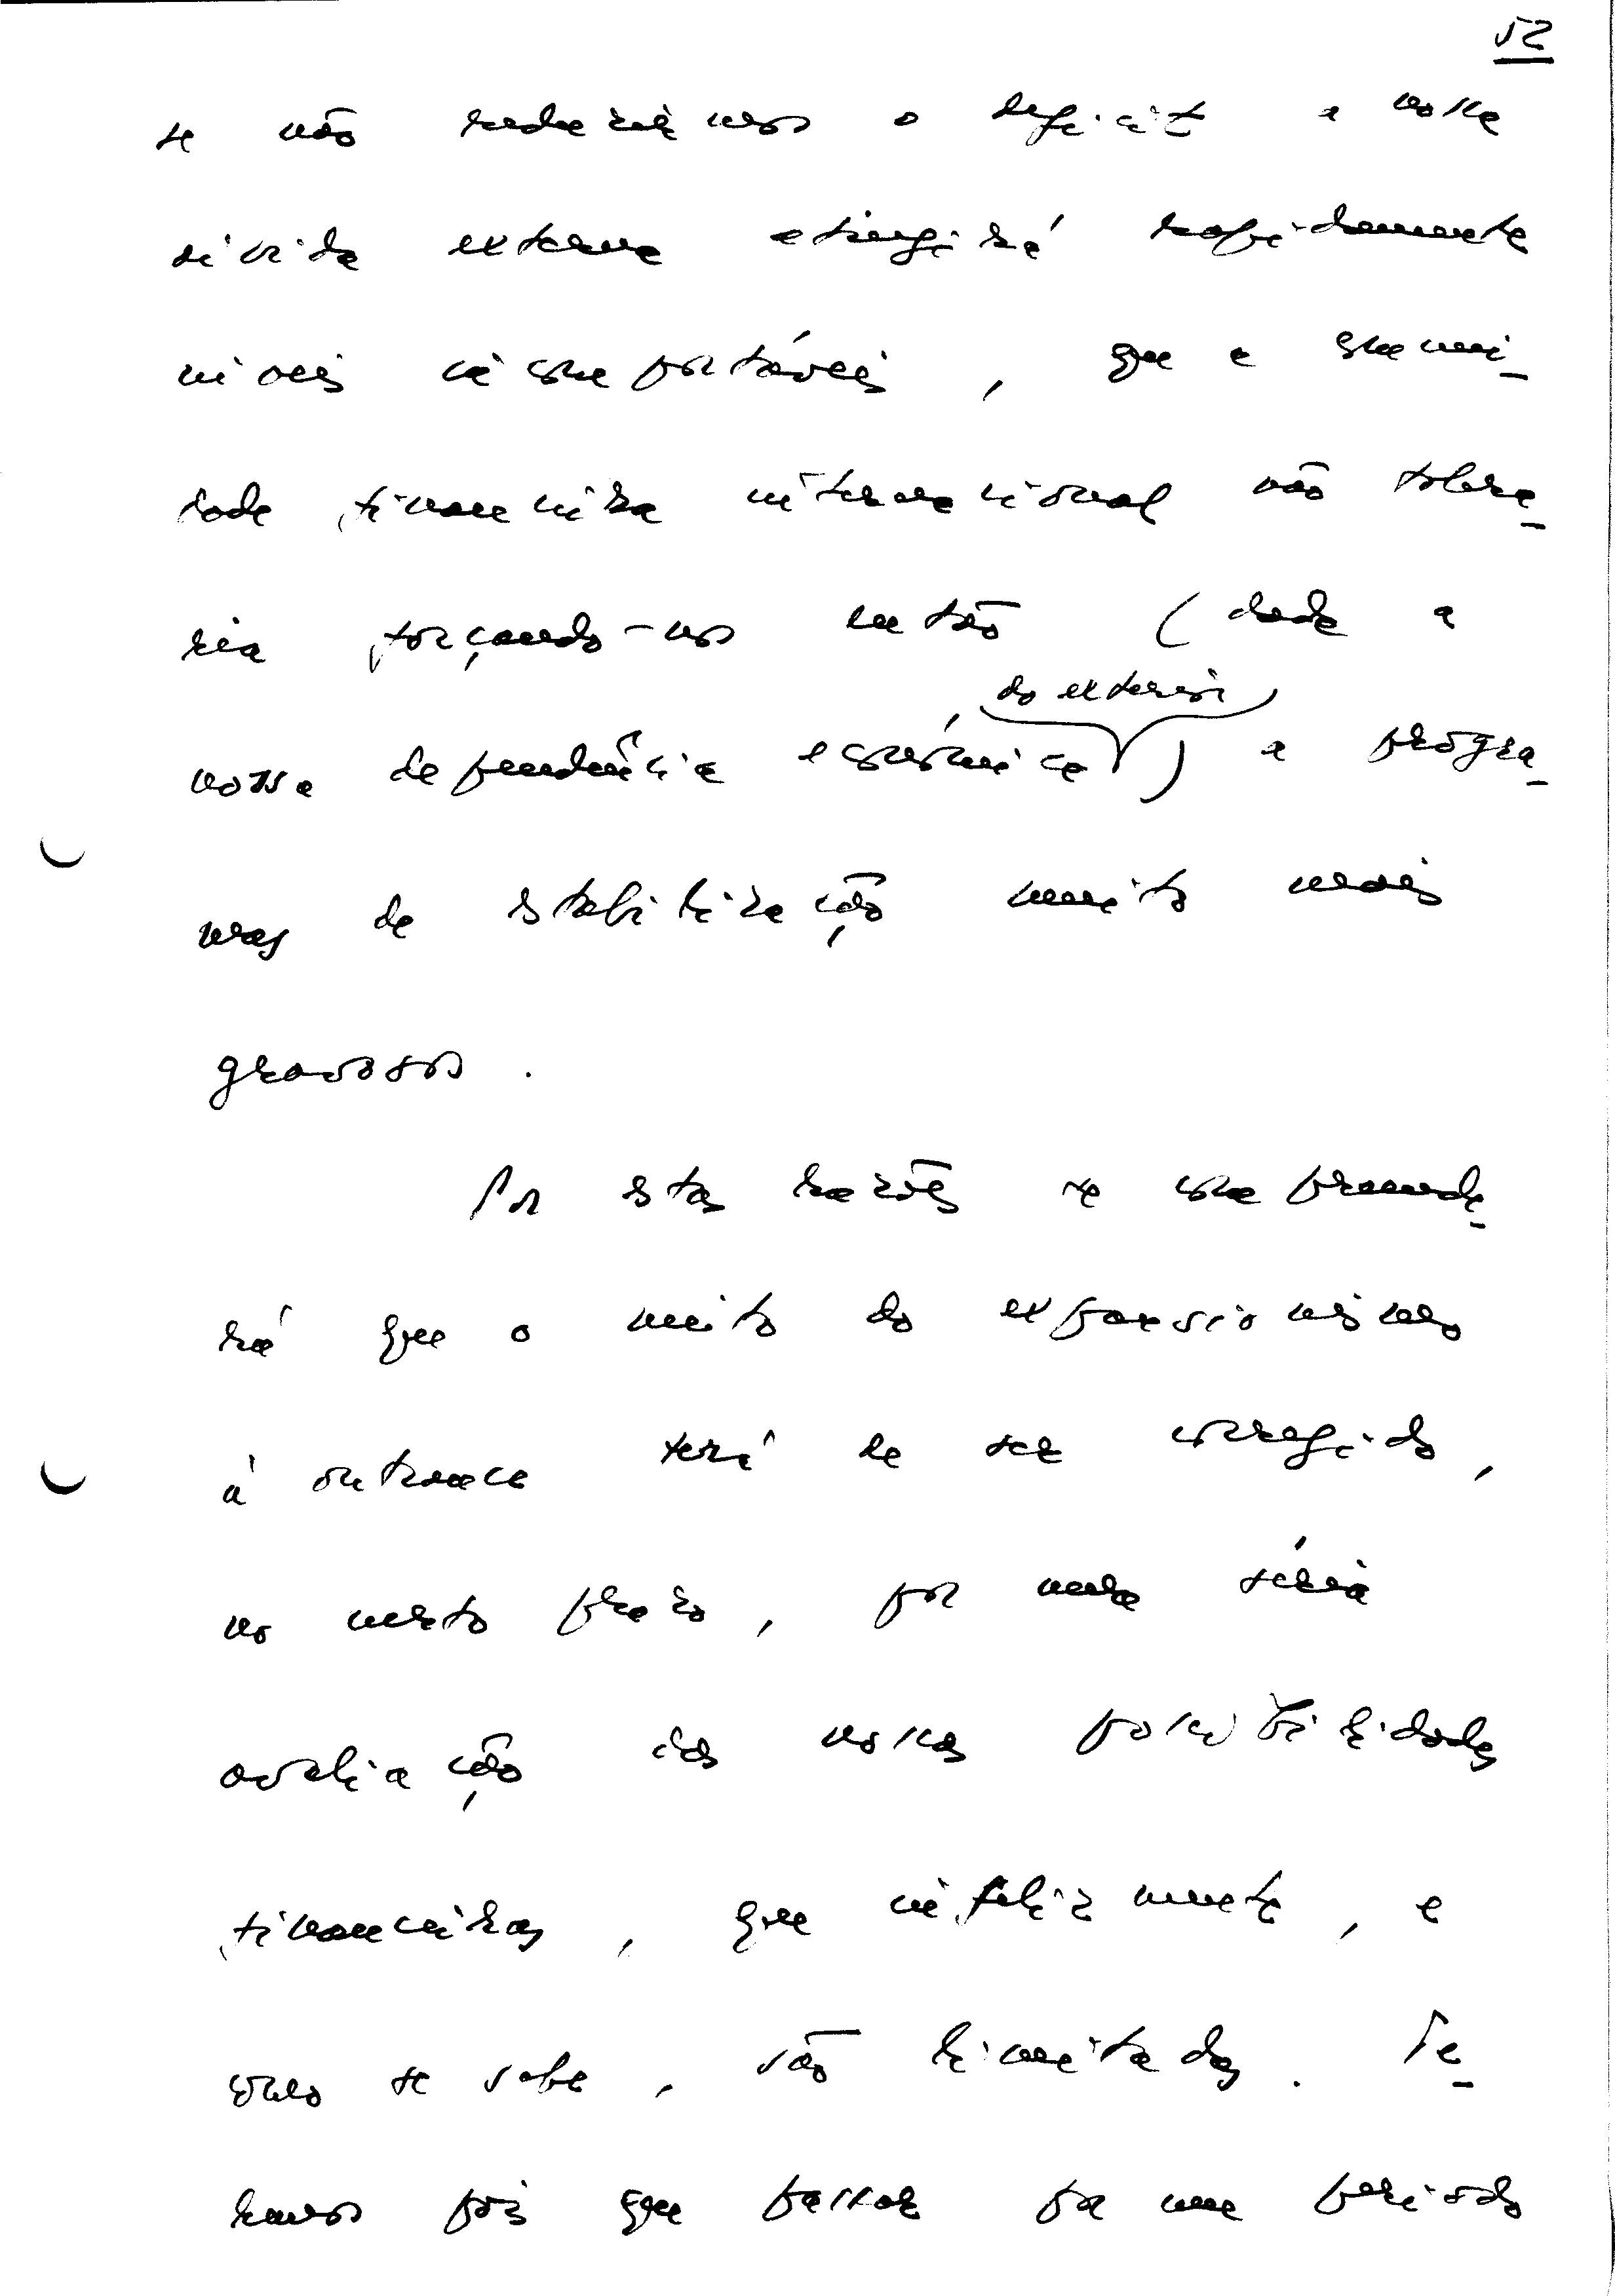 52
se não reduzirmos o deficit a nossa
dívida externa atingirá rapidamente
níveis incomportáveis, que a comuni-
dade financeira internacional não tolera-
ria forçando-nos então (dada a
do exterior
nossa dependência económica) a progra-
mas de estabilização muito mais
gravosos.
Por estas razões se compreende-
rá que o mito do expansionismo
à outrance terá de ser corrigido,
no curto prazo, por uma séria
avaliação das nossas possibilidades
financeiras, que infelizmente, e
como se sabe, são limitadas. Te-
remos pois que passar por um período